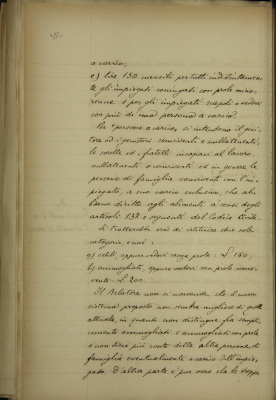 a carico;
c) lire 150 mensili per tutti indistintamen=
te gli impiegati coniugati con prole mino=
renne o per gli impiegati nubili o vedovi
con più di una persona a carico.
Per "persone a carico" si intendono il geni=
tore od i genitori conviventi e nullatenenti,
le sorelle ed i fratelli incapaci al lavoro
nullatenenti e conviventi ed in genere le
persone di famiglia conviventi con l'im=
piegato, a suo carico esclusivo, che ab=
biano diritto agli alimenti a sensi degli
articoli 138 e seguenti del Codice Civile.
Si tratterebbe ora di istituire due sole
categorie, e cioè:
a) celibi, oppure vedovi senza prole: £ 180.
b) ammogliati, oppure vedovi con prole convi=
vente: £ 200.
Il Relatore non si nasconde che il nuovo
sistema proposto non sembra migliore di quello
attuale, in quanto non distingue fra sempli=
cemente ammogliati e ammogliati con prole
e non tiene più conto delle altre persone di
famiglia eventualmente a carico dell'impie=
gato. D'altra parte è pur vero che le troppe